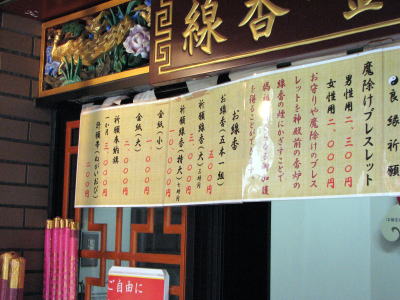 線香
良縁祈願
魔除けブレスレット
男性用 二、三〇〇円
女性用 二、〇〇〇円
お守りや魔除けのブレス
レットを神殿前の香炉の
線香の煙にかざすことで
お線香(五本一組)
五〇〇円
祈願線香(大)三時間
祈願線香(特大)七時間
金紙(小)
一、〇〇〇円
金紙(大)
二、〇〇〇円
祈願奉納旗
一か月 三、〇〇〇円
祈願帯(ねがいおび)
二、〇〇〇円
ご自由に